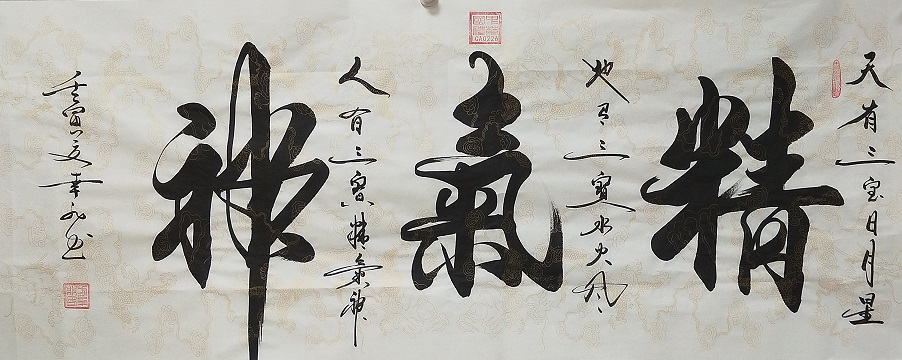 天有三宝日月星
精
地有三宝水火风
氣
人有三寶精氣神
神
壬寅之夏幸永书